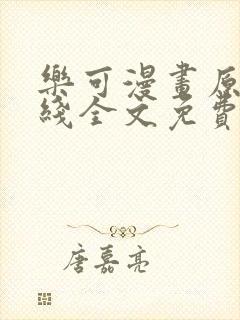 樂可漫畫原
綫全文免費
唐嘉亮